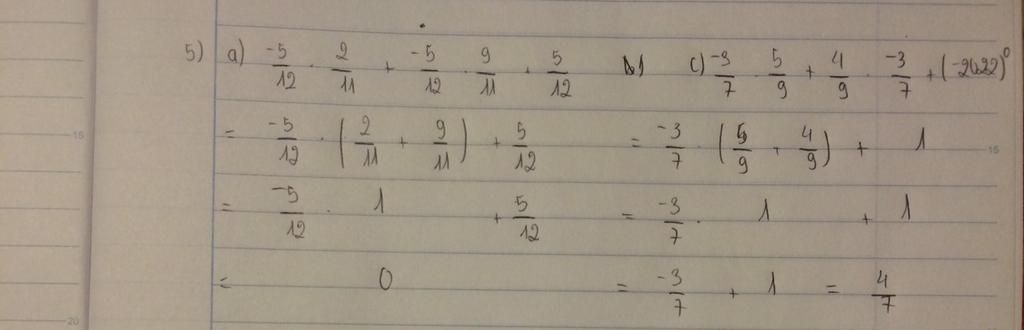 5) a) -5/12 . 2/11 + -5/12 . 9/11 + 5/12
= -5/12 . (2/11 + 9/11) + 5/12
= -5/12 . 1 + 5/12
= 0
c) -3/7 . 5/9 + 4/9 . -3/7 + (-2022)⁰
= -3/7 . (5/9 + 4/9) + 1
= -3/7 . 1 + 1
= -3/7 + 1 = 4/7
15
15
20